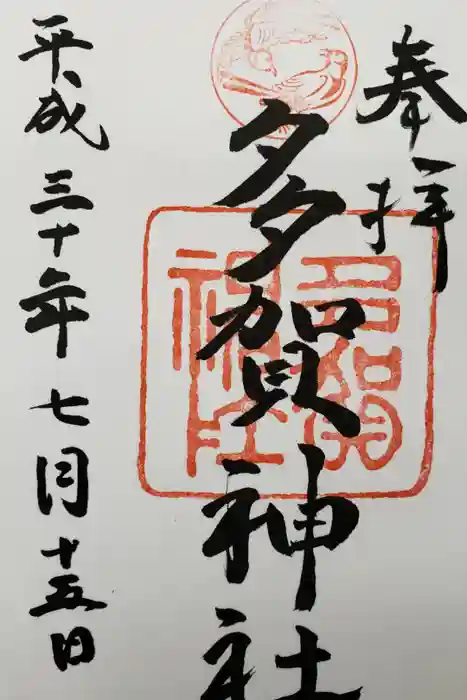 奉拝
多賀神社
多賀神社
平成三十年七月十五日